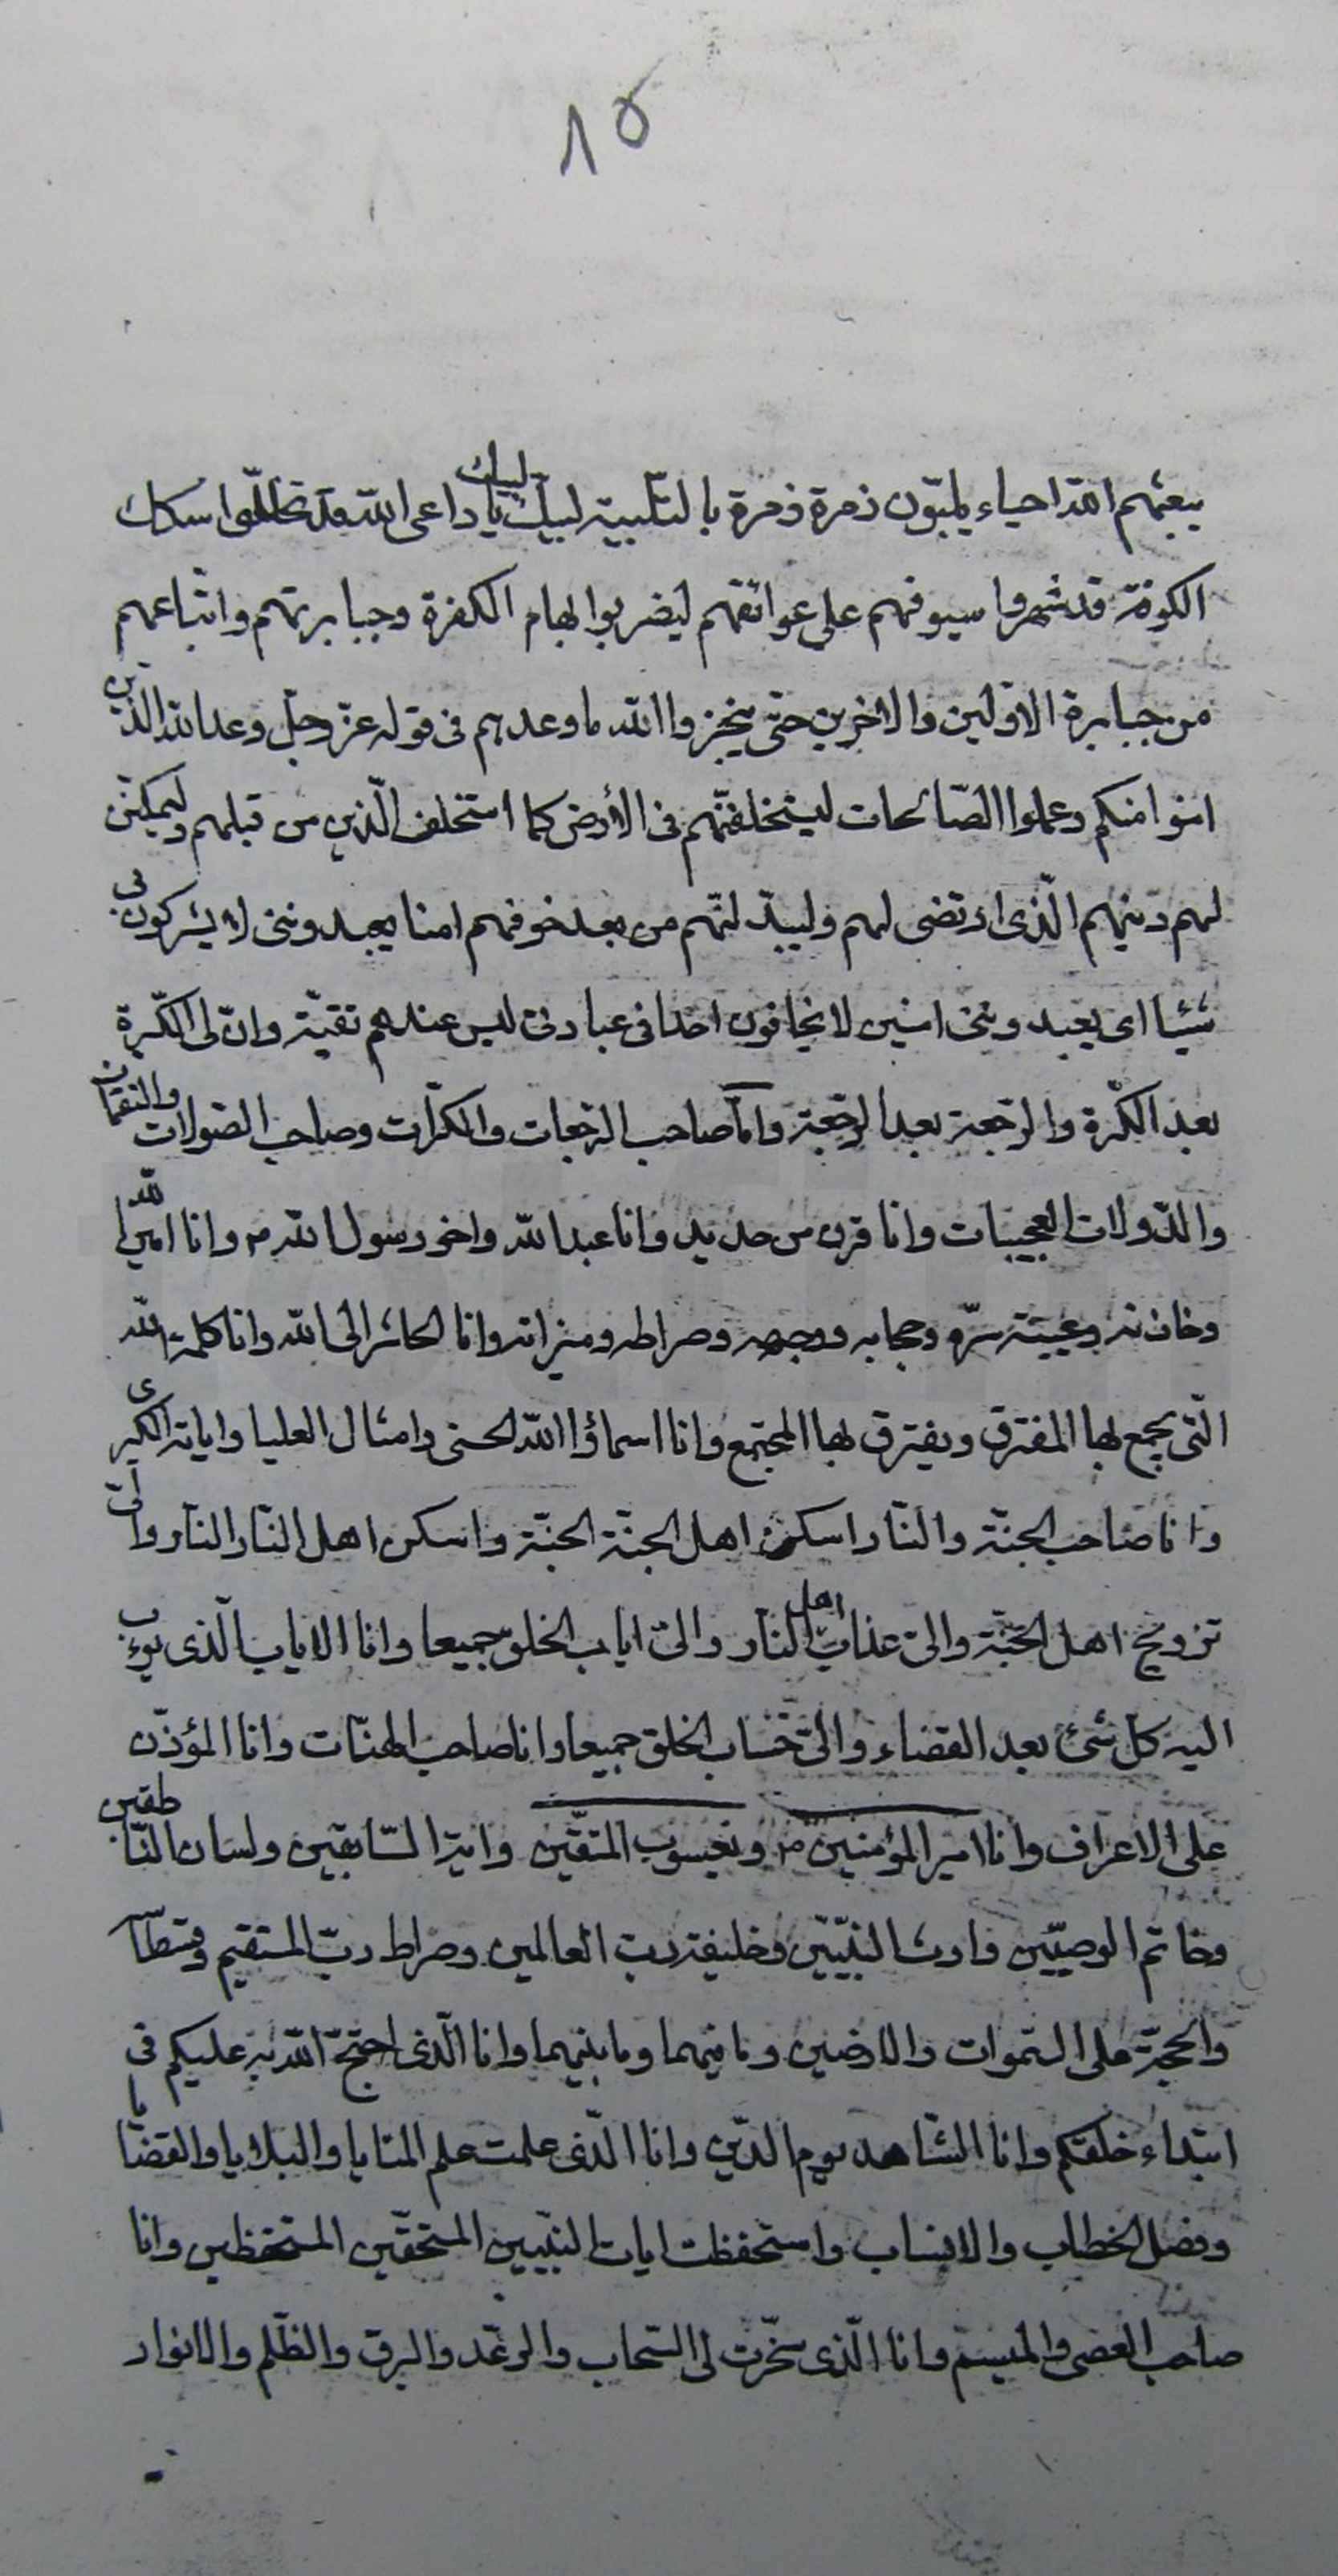 ۸۵
يبعثهم الله احياء يلبّون زمرة زمرة بالتّلبية لبيك لبيك يا داعى الله قد تخللّوا سكك
الكوفة قد شهروا سيوفهم على عواتقهم ليضربوا بها هام الكفرة وجبابرتهم واتباعهم
من جبابرة الاوّلين والاخرين حتى ينجز والله ما وعدهم فى قوله عزّ وجلّ وعد الله الذين
امنوا منكم وعملوا الصّالحات ليستخلفنّهم فى الأرض كما استخلف الّذين من قبلهم وليمكّنن
لهم دينهم الّذى ارتضى لهم وليبدّلنّهم من بعد خوفهم امنا يعبدوننى لا يشركون بى
شيئا اى يعبدوننى امنين لا يخافون احدا فى عبادتى ليس عندهم تقيّة وانّ لى الكّرة
بعد الكّرة والرّجعة بعد الرّجعة وانا صاحب الرّجعات والكرّات وصاحب الصّولات والنقمات
والدّولات العجيبات وانا قرن من حديد وانا عبد الله واخو رسول الله ص وانا امين الله
وخازنه وعيبة سرّه وحجابه ووجهه وصراطه وميزانه وانا الحاشر الى الله وانا كلمة الله
الّتى يجمع بها المفترق ويفترق بها المجتمع وانا اسماؤ الله الحسنى وامثال العليا واياته الكبرى
وانا صاحب الجنّة والنّار اسكن اهل الجنّة الجنّة واسكن اهل النّار النّار والىّ
تزويج اهل الجنّة والىّ عذاب اهل النّار والىّ اياب الخلق جميعا وانا الاياب الّذى يؤب
اليه كل شئ بعد القضاء والىّ حساب الخلق جميعا وانا صاحب الهنّات وانا المؤذّن
على الاعراف وانا امير المؤمنين ويعسوب المتقّين واية السّابقين ولسان النّاطقين
وخاتم الوصيّين وارث النّبيّين وخليفة ربّ العالمين وصراط ربّ المستقيم وقسطا
والحجّة على السّموات والارضين وما فيهما وما بينهما وانا الّذى احتجّ الله به عليكم فى
ابتداء خلقكم وانا الشّاهد يوم الدّين وانا الّذى علمت علم المنايا والبلايا والقضايا
وفصل الخطاب والانساب واستحفظت ايات النّبيّين المستحقّين المستحفظين وانا
صاحب العصى والميسم وانا الّذى سخّرت لى السّحاب والرعّد والبرق والظّلم والانوار